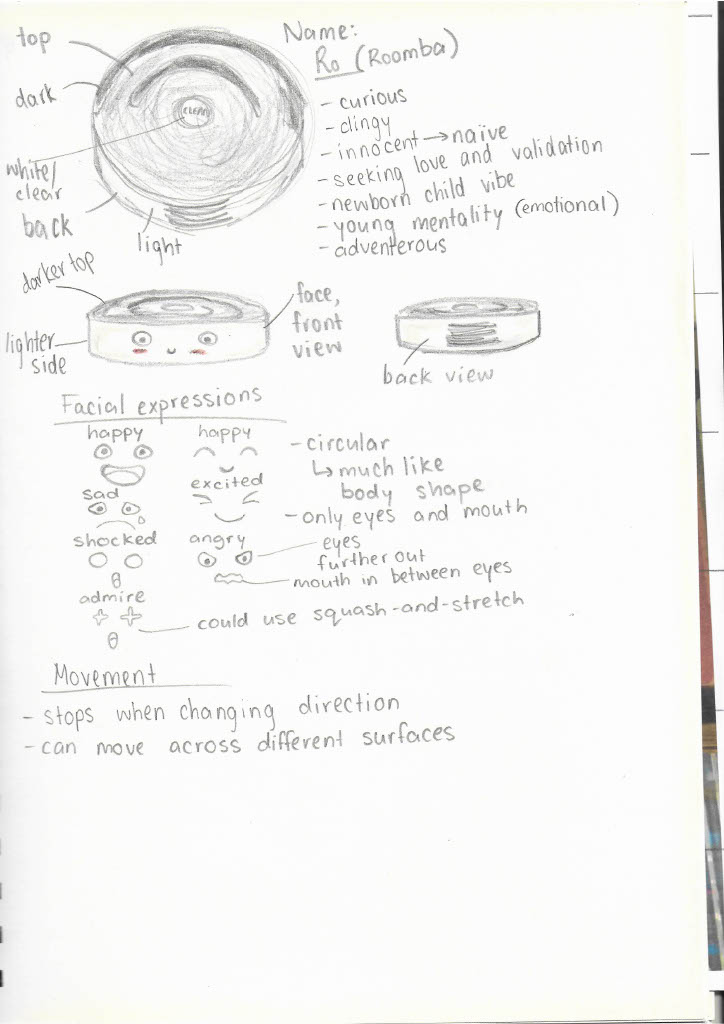 Name:
Ro (Roomba)
top
dark
CLEAN
white/
clear
back
light
- curious
- clingy
- innocent → naïve
- seeking love and validation
- newborn child vibe
- young mentality (emotional)
- adventerous
darker top
lighter
side
face,
front
view
back view
Facial expressions
happy
happy
sad
excited
shocked
angry
admire
- circular
↳ much like
body shape
- only eyes and mouth
eyes
further out
mouth in between eyes
could use squash-and-stretch
Movement
- stops when changing direction
- can move across different surfaces